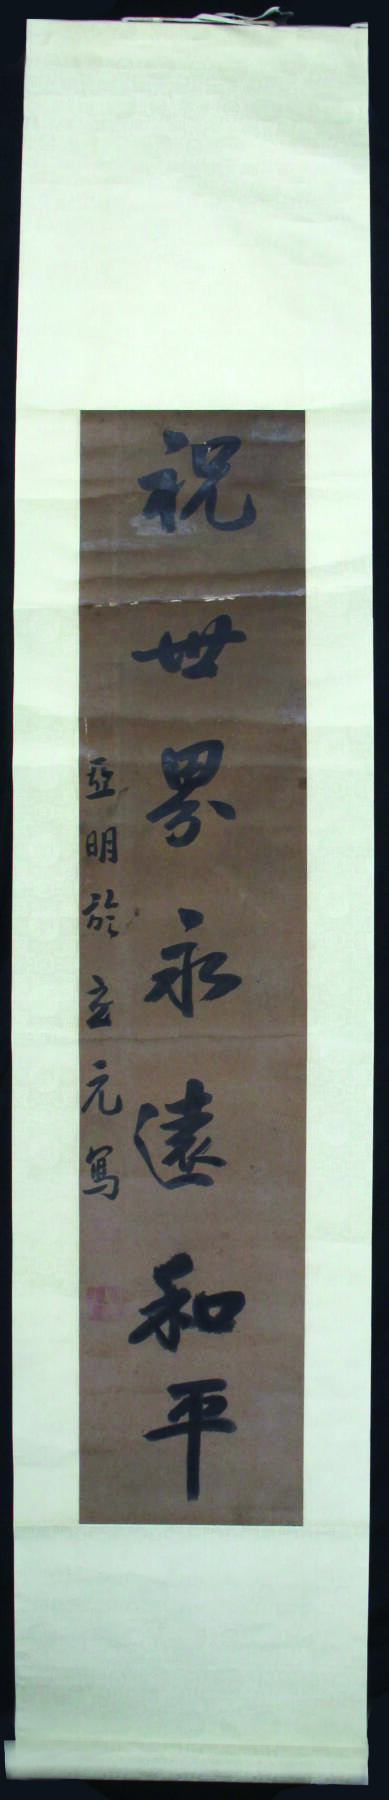 祝世界永遠和平
亞明於立元寫